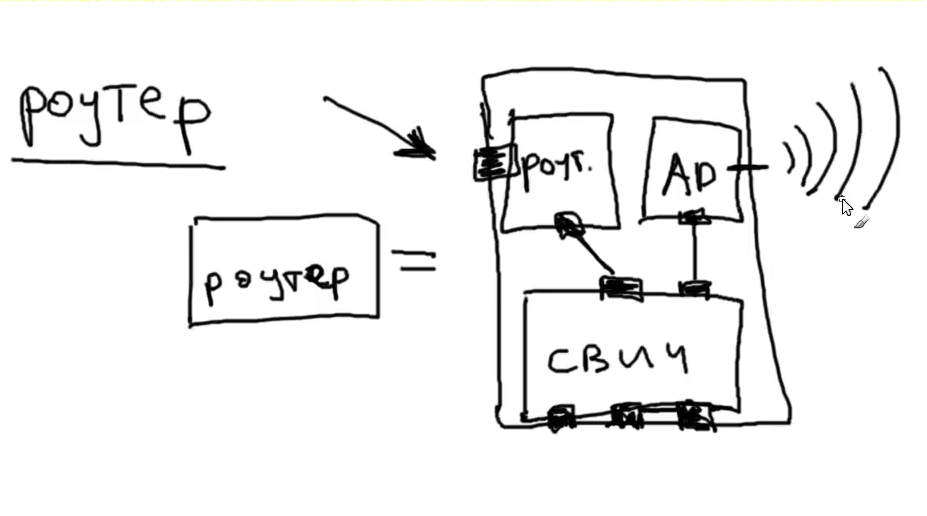 роутер
роут.
AP
роутер =
СВИЧ